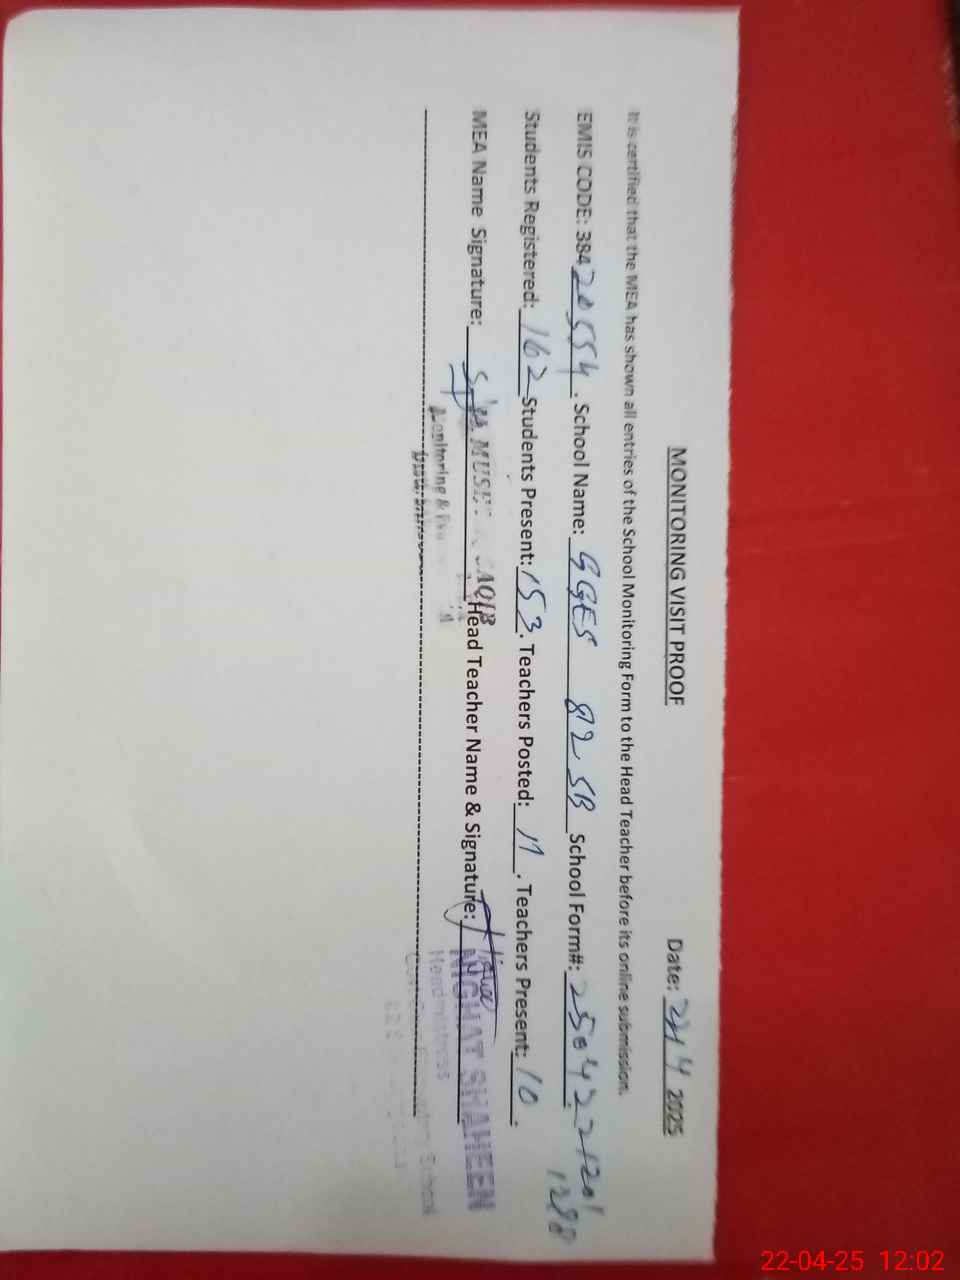 MONITORING VISIT PROOF Date: 22/4 2025
It is certified that the MEA has shown all entries of the School Monitoring Form to the Head Teacher before its online submission.
EMIS CODE: 38420554. School Name: GGES 82 SB School Form#: 2504221201
1298
Students Registered: 162 Students Present: 153. Teachers Posted: 11. Teachers Present: 10.
MEA Name Signature: SAQIB Head Teacher Name & Signature: NIGHAT SHAHEEN
Monitoring & Headmistress
School
22-04-25 12:02